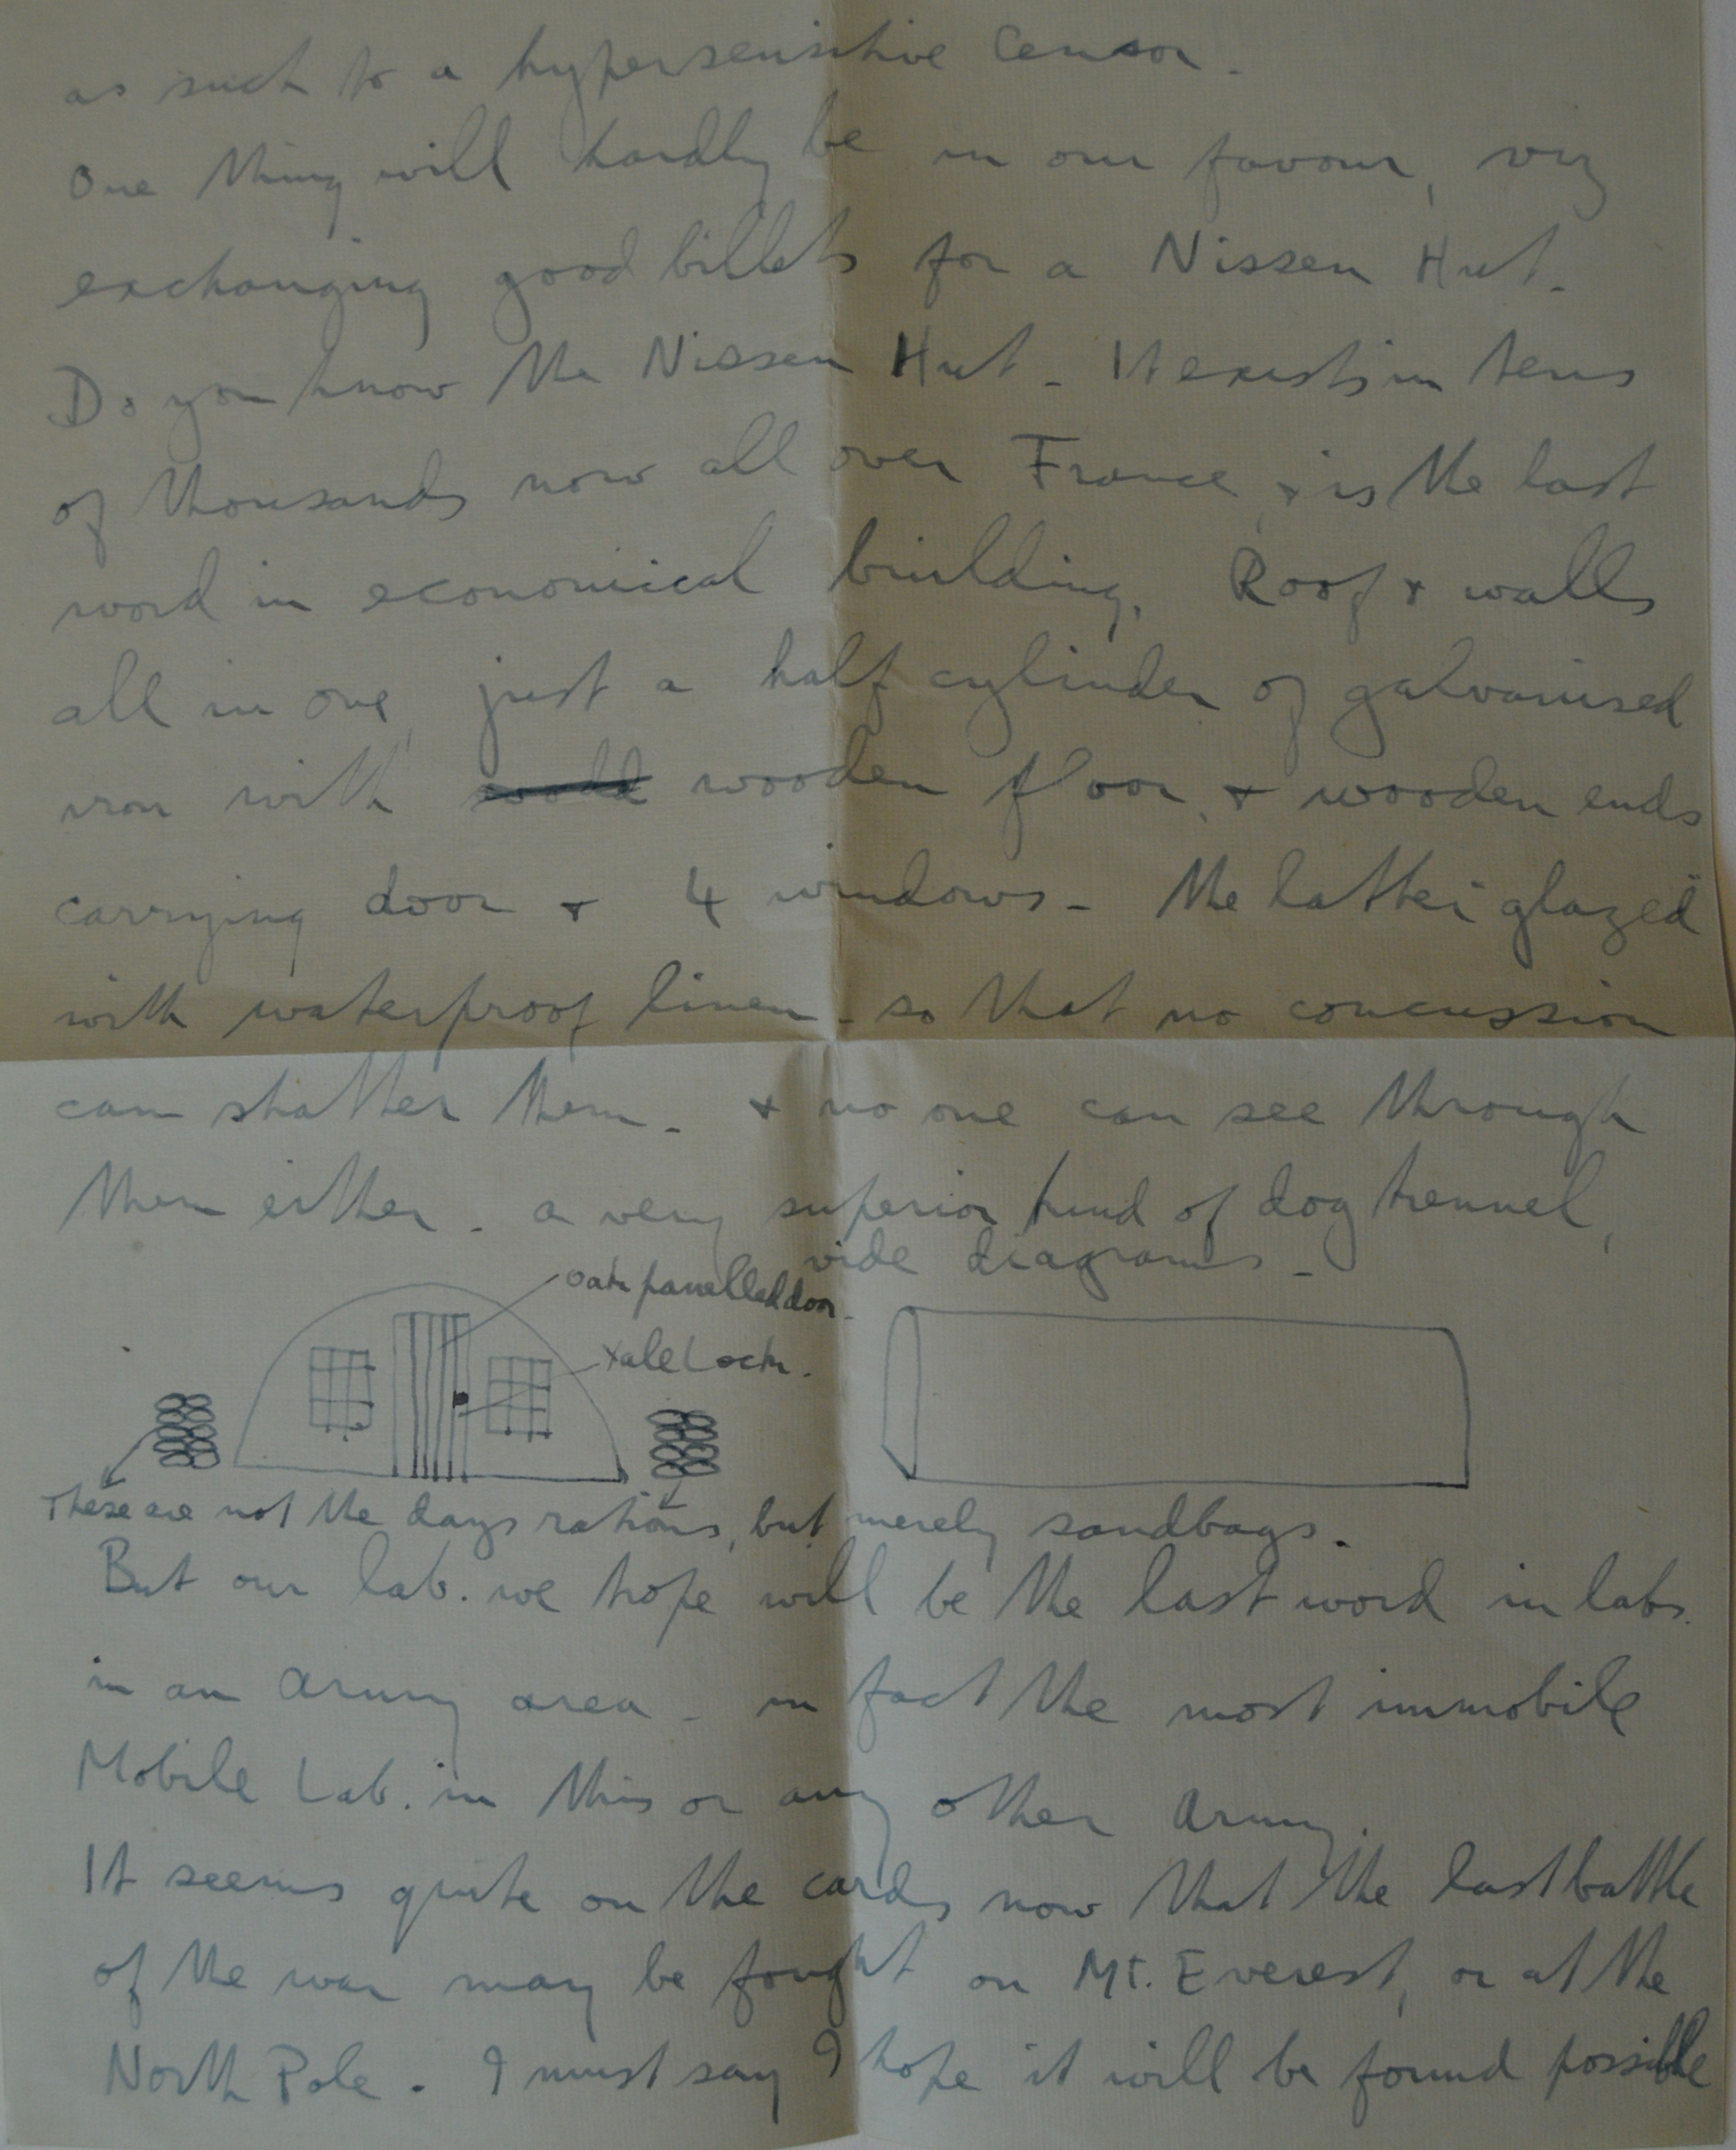 as such to a hypersensitive Censor.
One thing will hardly be in our favour, viz
exchanging good billets for a Nissen Hut.
Do you know the Nissen Hut - It exists in tens
of thousands now all over France, & is the last
word in economical building. Roof & walls
all in one, just a half cylinder of galvanised
iron with wooden floor, & wooden ends
carrying door & 4 windows - the latter "glazed"
with waterproof linen - so that no concussion
can shatter them - & no one can see through
them either - a very superior kind of dog kennel,
vide diagrams -
oak panelled door.
Yale Lock.
These are not the days rations, but merely sandbags.
But our lab. we hope will be the last word in labs.
in an Army area - in fact the most immobile
Mobile Lab. in this or any other Army.
It seems quite on the cards now that the last battle
of the war may be fought on Mt. Everest, or at the
North Pole. I must say I hope it will be found possible